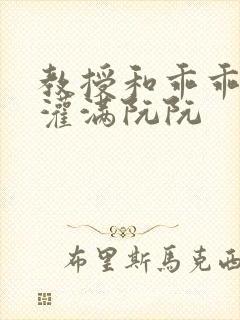 教授和乖乖
灌满阮阮
布里斯馬克西